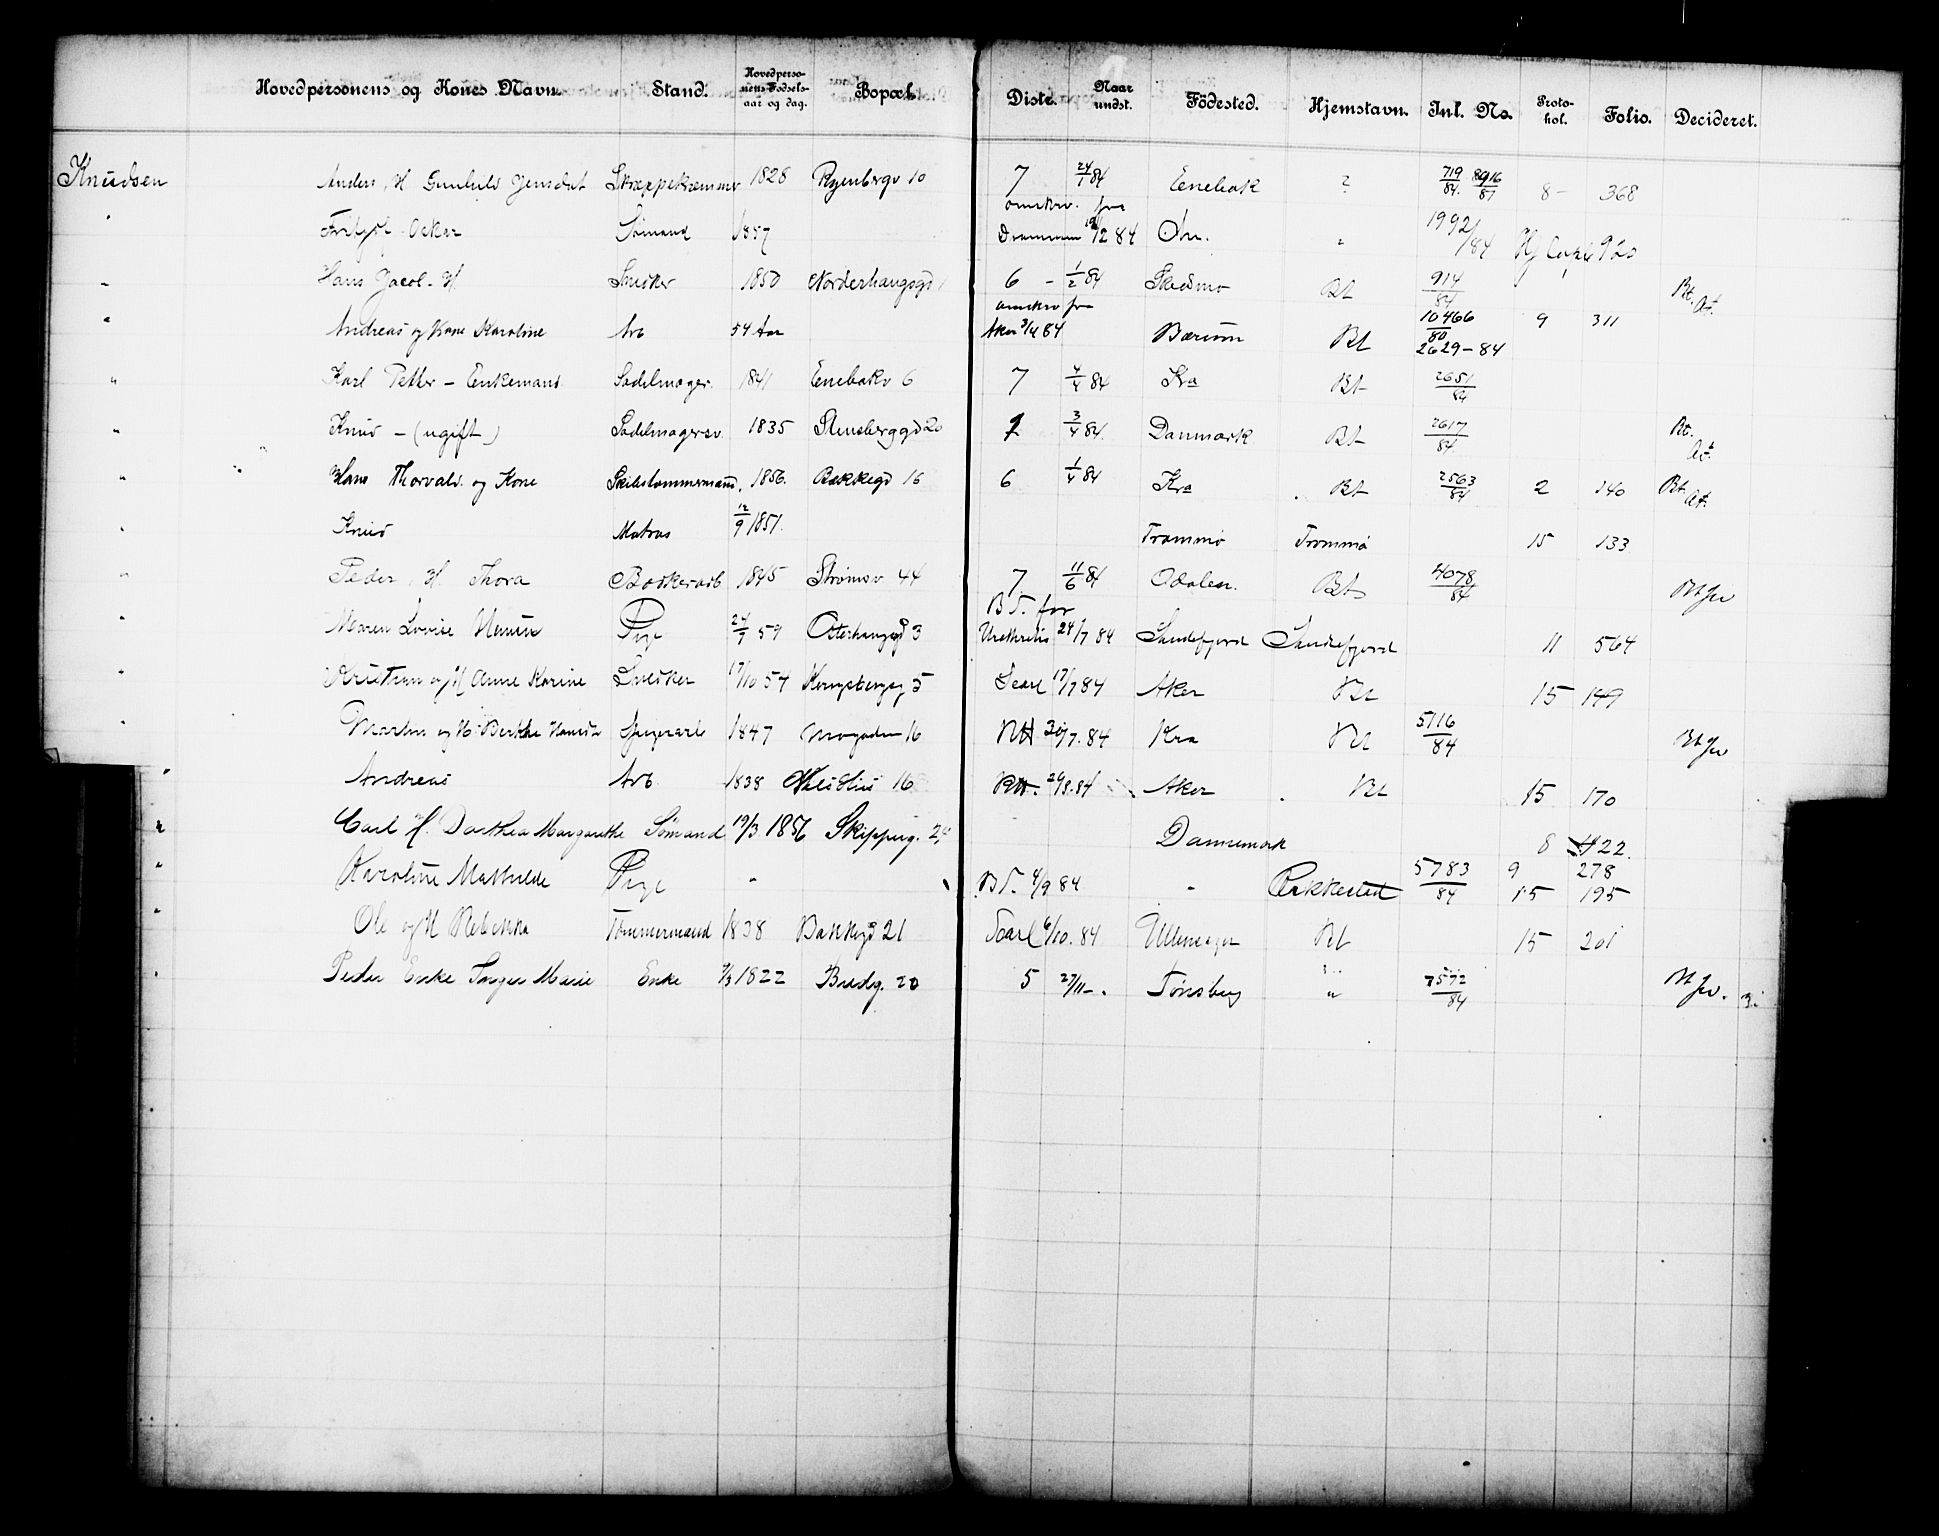 Hovedpersonens og Kones Navn. Stand. Hovedpersonens Fødselsaar og dag. Bopæl. Distr. Naar undst. Födested. Hjemstavn. Inl. No. Protokol. Folio. Decideret.
Knudsen Anders, H Gunhild Jensdat Skræppekræmmer 1828 Ryenbergv 10 7 24/1 84 Enebak ? 719/84. 8916/81 8 - 368
" Oskar Sømand 1857 omskr. fra Drammen 19/12 84 1992/84
" Hans Jacob - H Snedker 1850 Norderhaugsgd 1 6 - 1/2 84 Skedsmo Bt 914/84 Bt. At.
" Andreas og Kone Karoline Arb 54 Aar omskr fra Aker 3/4 84 Bærum Bt 10466/80 2629-84 9 311
" Karl Petter - Enkemand Sadelmager. 1841 Enebakv 6 7 4/4 84 Kra Bt 2651/84
" Knud - (ugift) Sadelmagersv. 1835 Stensberggd 20 2 3/4 84. Danmark Bt 2617/84 Bt. At.
" Hans Thorvald. og Kone Skibstømmermand. 1856. Bakkegd 16 6 1/4 84 Kra Bt 2563/84 2 140 Bt. At.
" Knud Matros 12/9 1851. Trommø Trommø 15 133
" Peder, H. Thora 1845 Strømsv 44 7 11/6 84 Odalen. Bt 4078/84
" Maren Lovise Pige 24/9 59 Østerhausgd 3 B T. for 24/7 84 Sandefjord Sandefjord 11 564
" Kristian og H Anne Karine Snedker 17/10 54 Kongsbergg 5 17/7 84 Aker Bt 15 149
" Martin og H. Berthe 1847 16 30/7. 84 Kra Bt 5116/84
" Andreas Arb. 1838 16 84 Aker Bt 15 170
" Carl H. Dorthea Margarethe Sømand 19/3 1856 Skipperg. Dannemark 8 422.
" Karoline Mathilde Pige " B T. 4/9 84 " Rakkestad 5783/84 9 278 15 195
" Ole og H Rebekka Tømmermand 1838 Bakkegd 21 6/10. 84 Ullensager Bt 15 201
" Peder Enke Inger Marie Enke 1822 Bredg. 20 5 27/11 -. Tønsberg " 7572/84